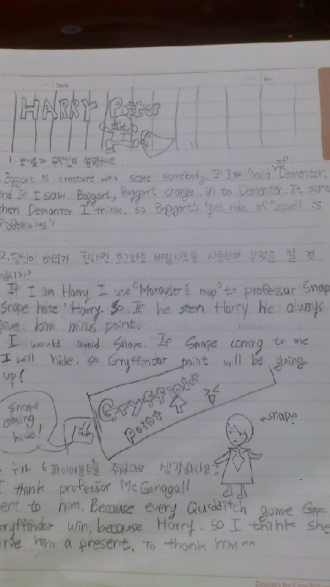 HARRY Potter
1.
Boggart is creature who scare somebody. If I so afraid of Dementor,
and so I saw Boggart, Boggart change in to Dementor. It scare
when Dementor I think. so Boggart's get ride of "spell is
2. 당신이 해리가 된다면
If I am Harry, I use "Marauder's map" to professor Snap
Snape hate Harry. So. If he seen Harry he always
give him minus point.
I would avoid Snape. If Snape coming to me
I will hide. so Gryffindor point will be going
up!
Snape
coming
hide!
Gryffindo
point
snape
누가 파이어볼트를 주었다고 생각하나요?
I think professor McGonagall
sent to him. Because every Quidditch game
Gryffindor win, because Harry. so I think she
give him a present. To thank him ^^